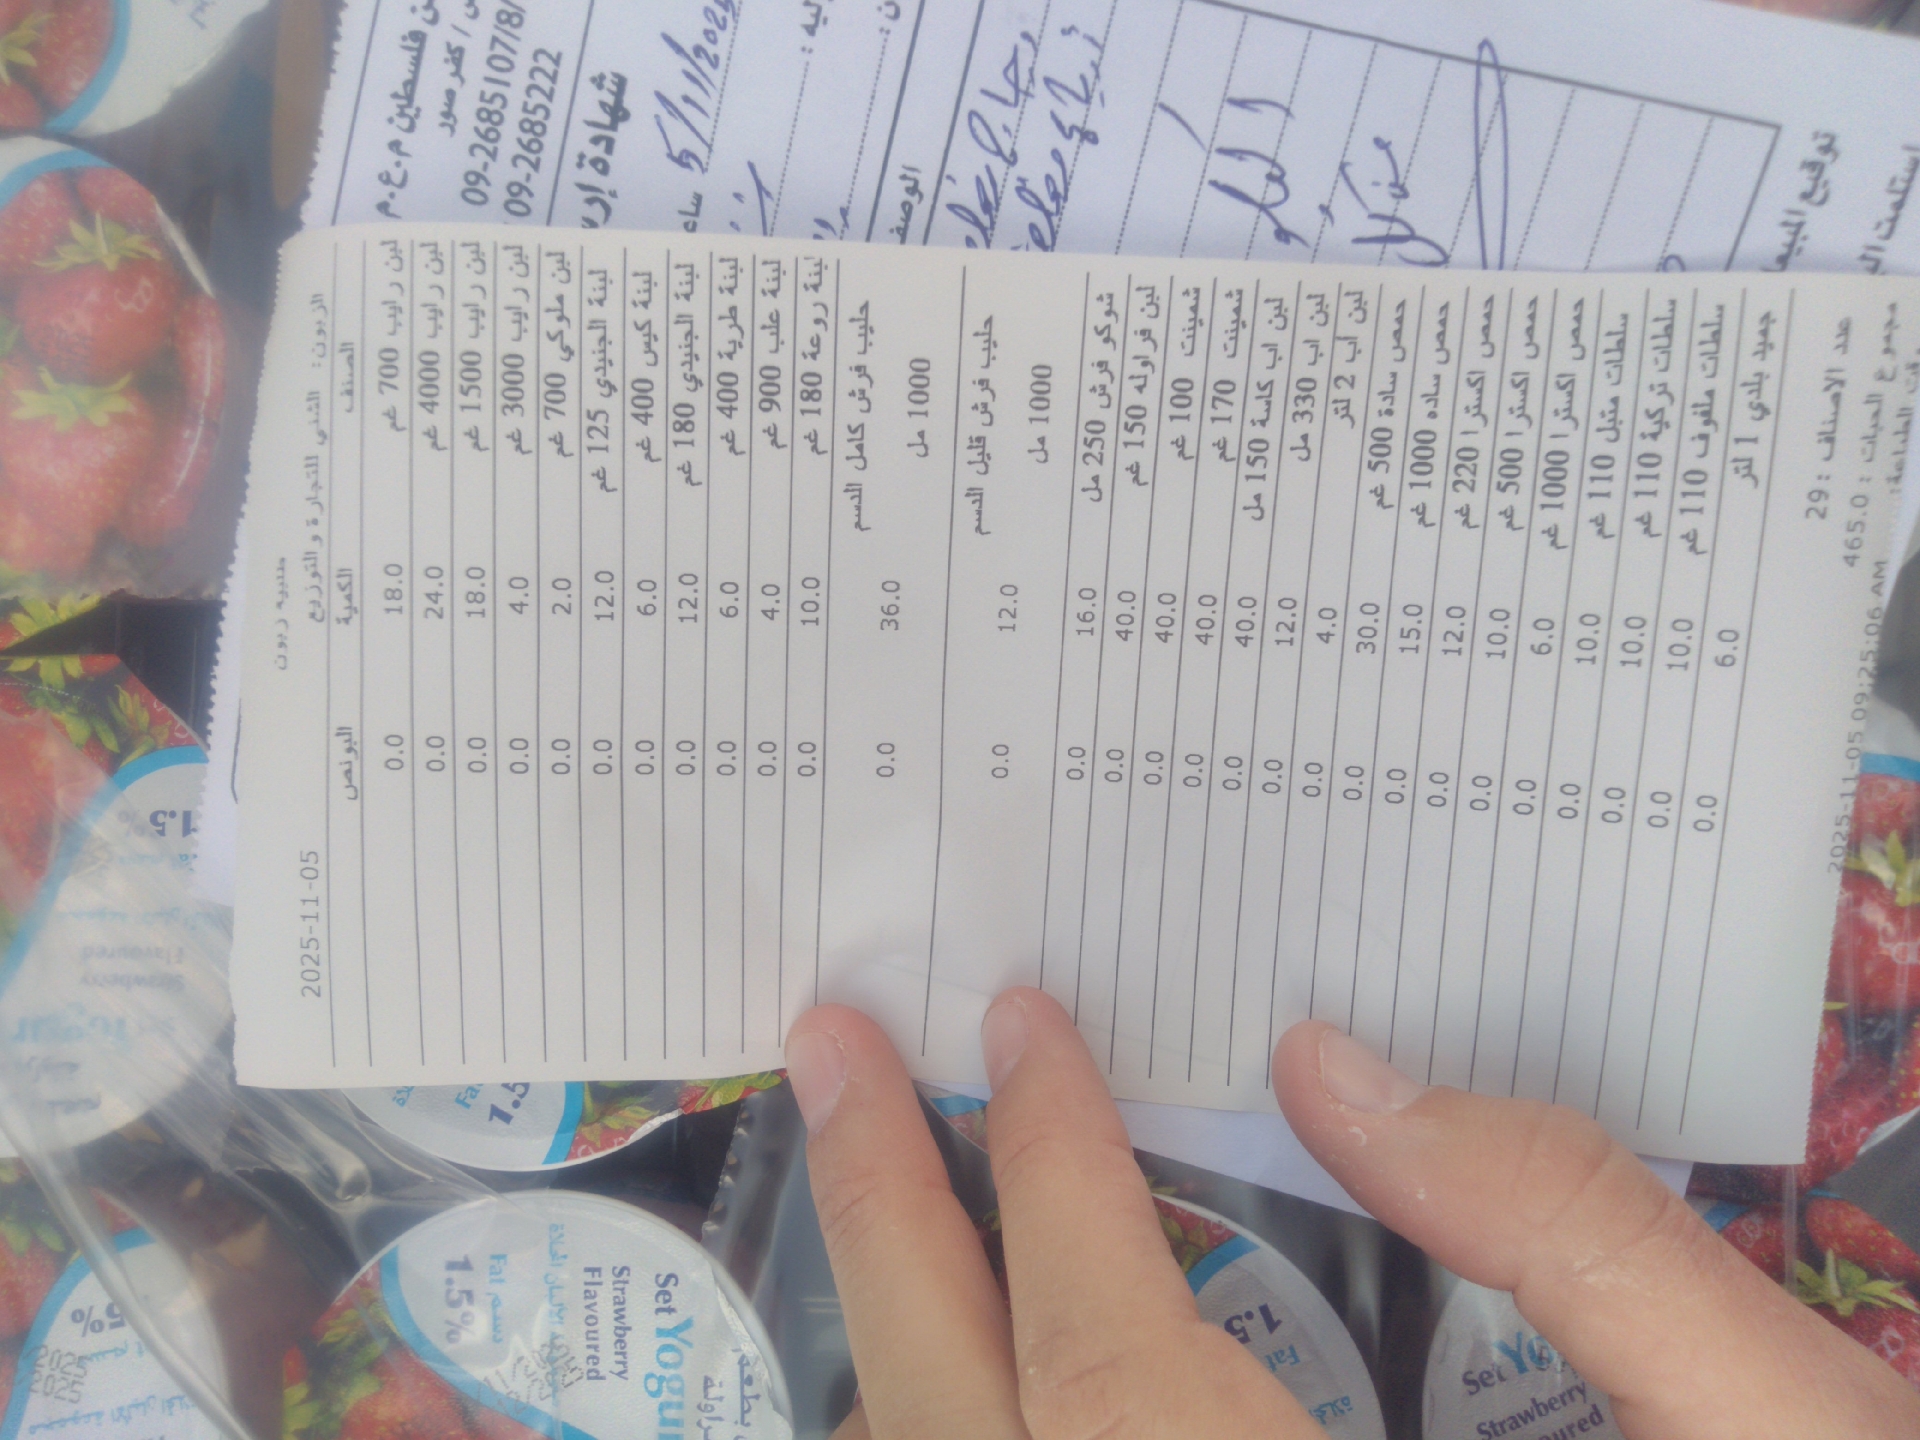 طلبيه زبون
الزبون: الشني للتجارة و التوزيع 2025-11-05
الصنف الكمية البونص
لبن رايب 700 غم 18.0 0.0
لبن رايب 4000 غم 24.0 0.0
لبن رايب 1500 غم 18.0 0.0
لبن رايب 3000 غم 4.0 0.0
لبن ملوكي 700 غم 2.0 0.0
لبنة الجنيدي 125 غم 12.0 0.0
لبنة كيس 400 غم 6.0 0.0
لبنة الجنيدي 180 غم 12.0 0.0
لبنة طرية 400 غم 6.0 0.0
لبنة علب 900 غم 4.0 0.0
لبنة روعة 180 غم 10.0 0.0
حليب فرش كامل الدسم 36.0 0.0
1000 مل
حليب فرش قليل الدسم 12.0 0.0
1000 مل
شوكو فرش 250 مل 16.0 0.0
لبن فراوله 150 غم 40.0 0.0
شمينت 100 غم 40.0 0.0
شمينت 170 غم 40.0 0.0
لبن اب كاسة 150 مل 40.0 0.0
لبن اب 330 مل 12.0 0.0
لبن اب 2 لتر 4.0 0.0
حمص سادة 500 غم 30.0 0.0
حمص ساده 1000 غم 15.0 0.0
حمص اكسترا 220 غم 12.0 0.0
حمص اكسترا 500 غم 10.0 0.0
حمص اكسترا 1000 غم 6.0 0.0
سلطات متبل 110 غم 10.0 0.0
سلطات تركية 110 غم 10.0 0.0
سلطات ملفوف 110 غم 10.0 0.0
جميد بلدي 1 لتر 6.0
عدد الاصناف : 29
مجموع الحبات : 465.0
2025-11-05 09:25:06 AM
فلسطين م.ع.م
/ كفر صور
09-2685107/8/
09-2685222
شهادة
5/11/202
الوصف
توقيع
استلمت
Set Yogurt
Strawberry
Flavoured
Fat
1.5%
دسم
Fat
1.5
Set
Strawberry